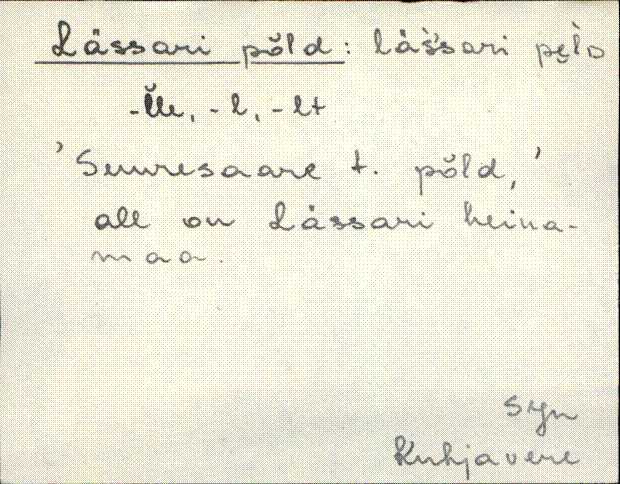 Lässari põld: läs̆sari pe̮l̀D
-l̆le, -l, -lt
'Suuresaare t. põld,'
all on Lässari heina-
maa.
SJn
Kuhjavere